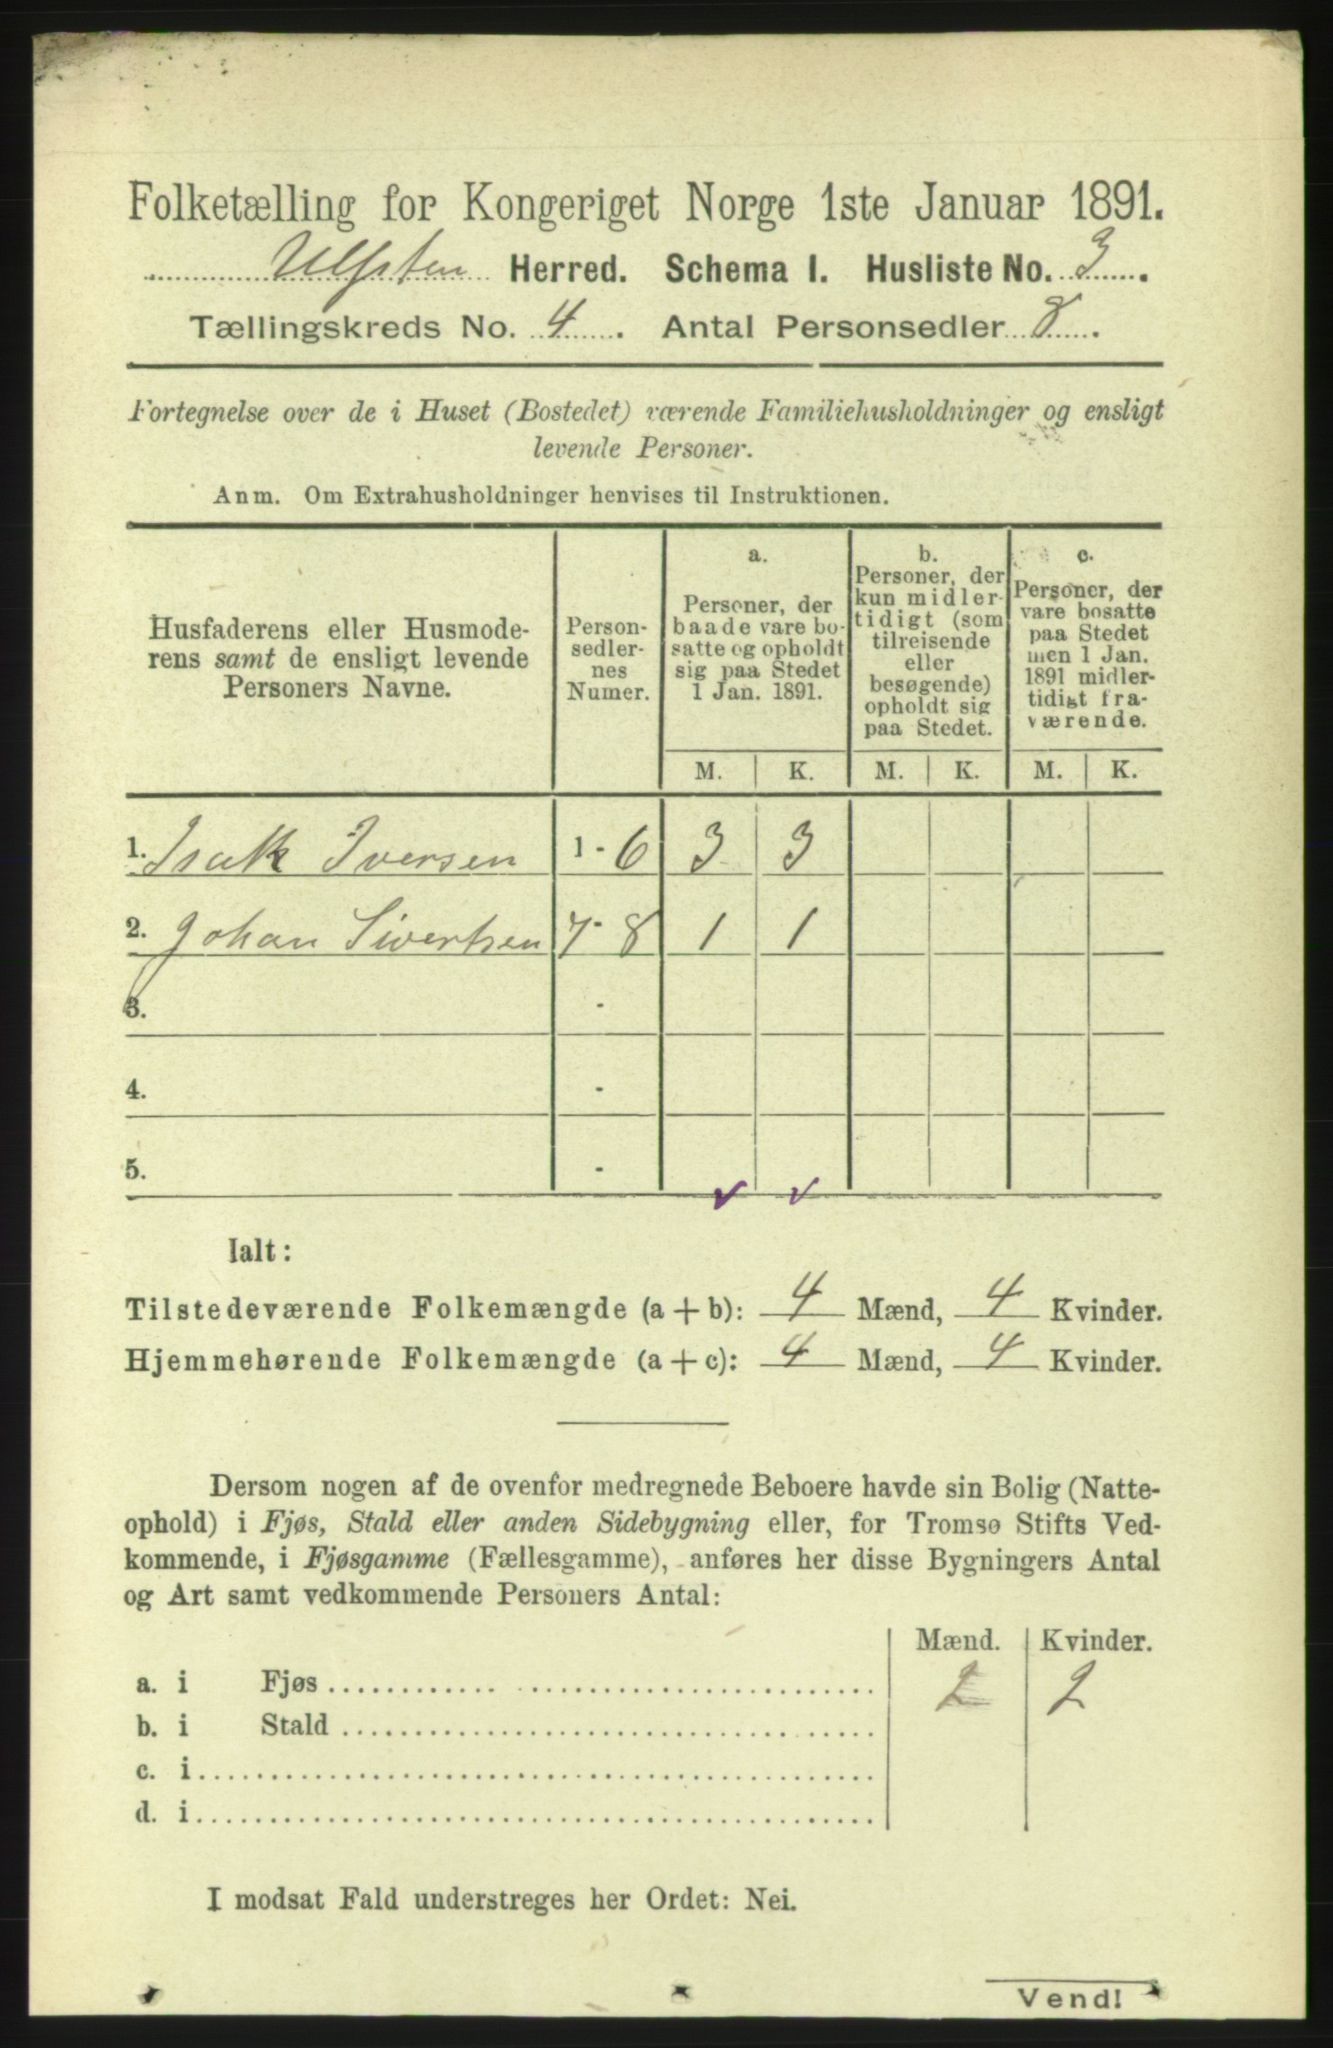 Folketælling for Kongeriget Norge 1ste Januar 1891.
Ulfsten Herred. Schema I. Husliste No. 3.
Tællingskreds No. 4. Antal Personsedler 8.
Fortegnelse over de i Huset (Bostedet) værende Familiehusholdninger og ensligt
levende Personer.
Anm. Om Extrahusholdninger henvises til Instruktionen.
Husfaderens eller Husmode-
rens samt de ensligt levende
Personers Navne.
Person-
sedler-
nes
Numer.
a.
Personer, der
baade vare bo-
satte og opholdt
sig paa Stedet
1 Jan. 1891.
b.
Personer, der
kun midler-
tidigt (som
tilreisende
eller
besøgende)
opholdt sig
paa Stedet.
c.
Personer, der
vare bosatte
paa Stedet
men 1 Jan.
1891 midler-
tidigt fra-
værende.
M. K. M. K. M. K.
1. Isak Iversen 1 - 6 3 3
2. Johan Sivertsen 7 - 8 1 1
3. -
4. -
5. -
Ialt:
Tilstedeværende Folkemængde (a + b): 4 Mænd, 4 Kvinder.
Hjemmehørende Folkemængde (a + c): 4 Mænd, 4 Kvinder.
Dersom nogen af de ovenfor medregnede Beboere havde sin Bolig (Natte-
ophold) i Fjøs, Stald eller anden Sidebygning eller, for Tromsø Stifts Ved-
kommende, i Fjøsgamme (Fællesgamme), anføres her disse Bygningers Antal
og Art samt vedkommende Personers Antal:
Mænd. Kvinder.
a. i Fjøs 2 2
b. i Stald
c. i
d. i
I modsat Fald understreges her Ordet: Nei.
Vend!